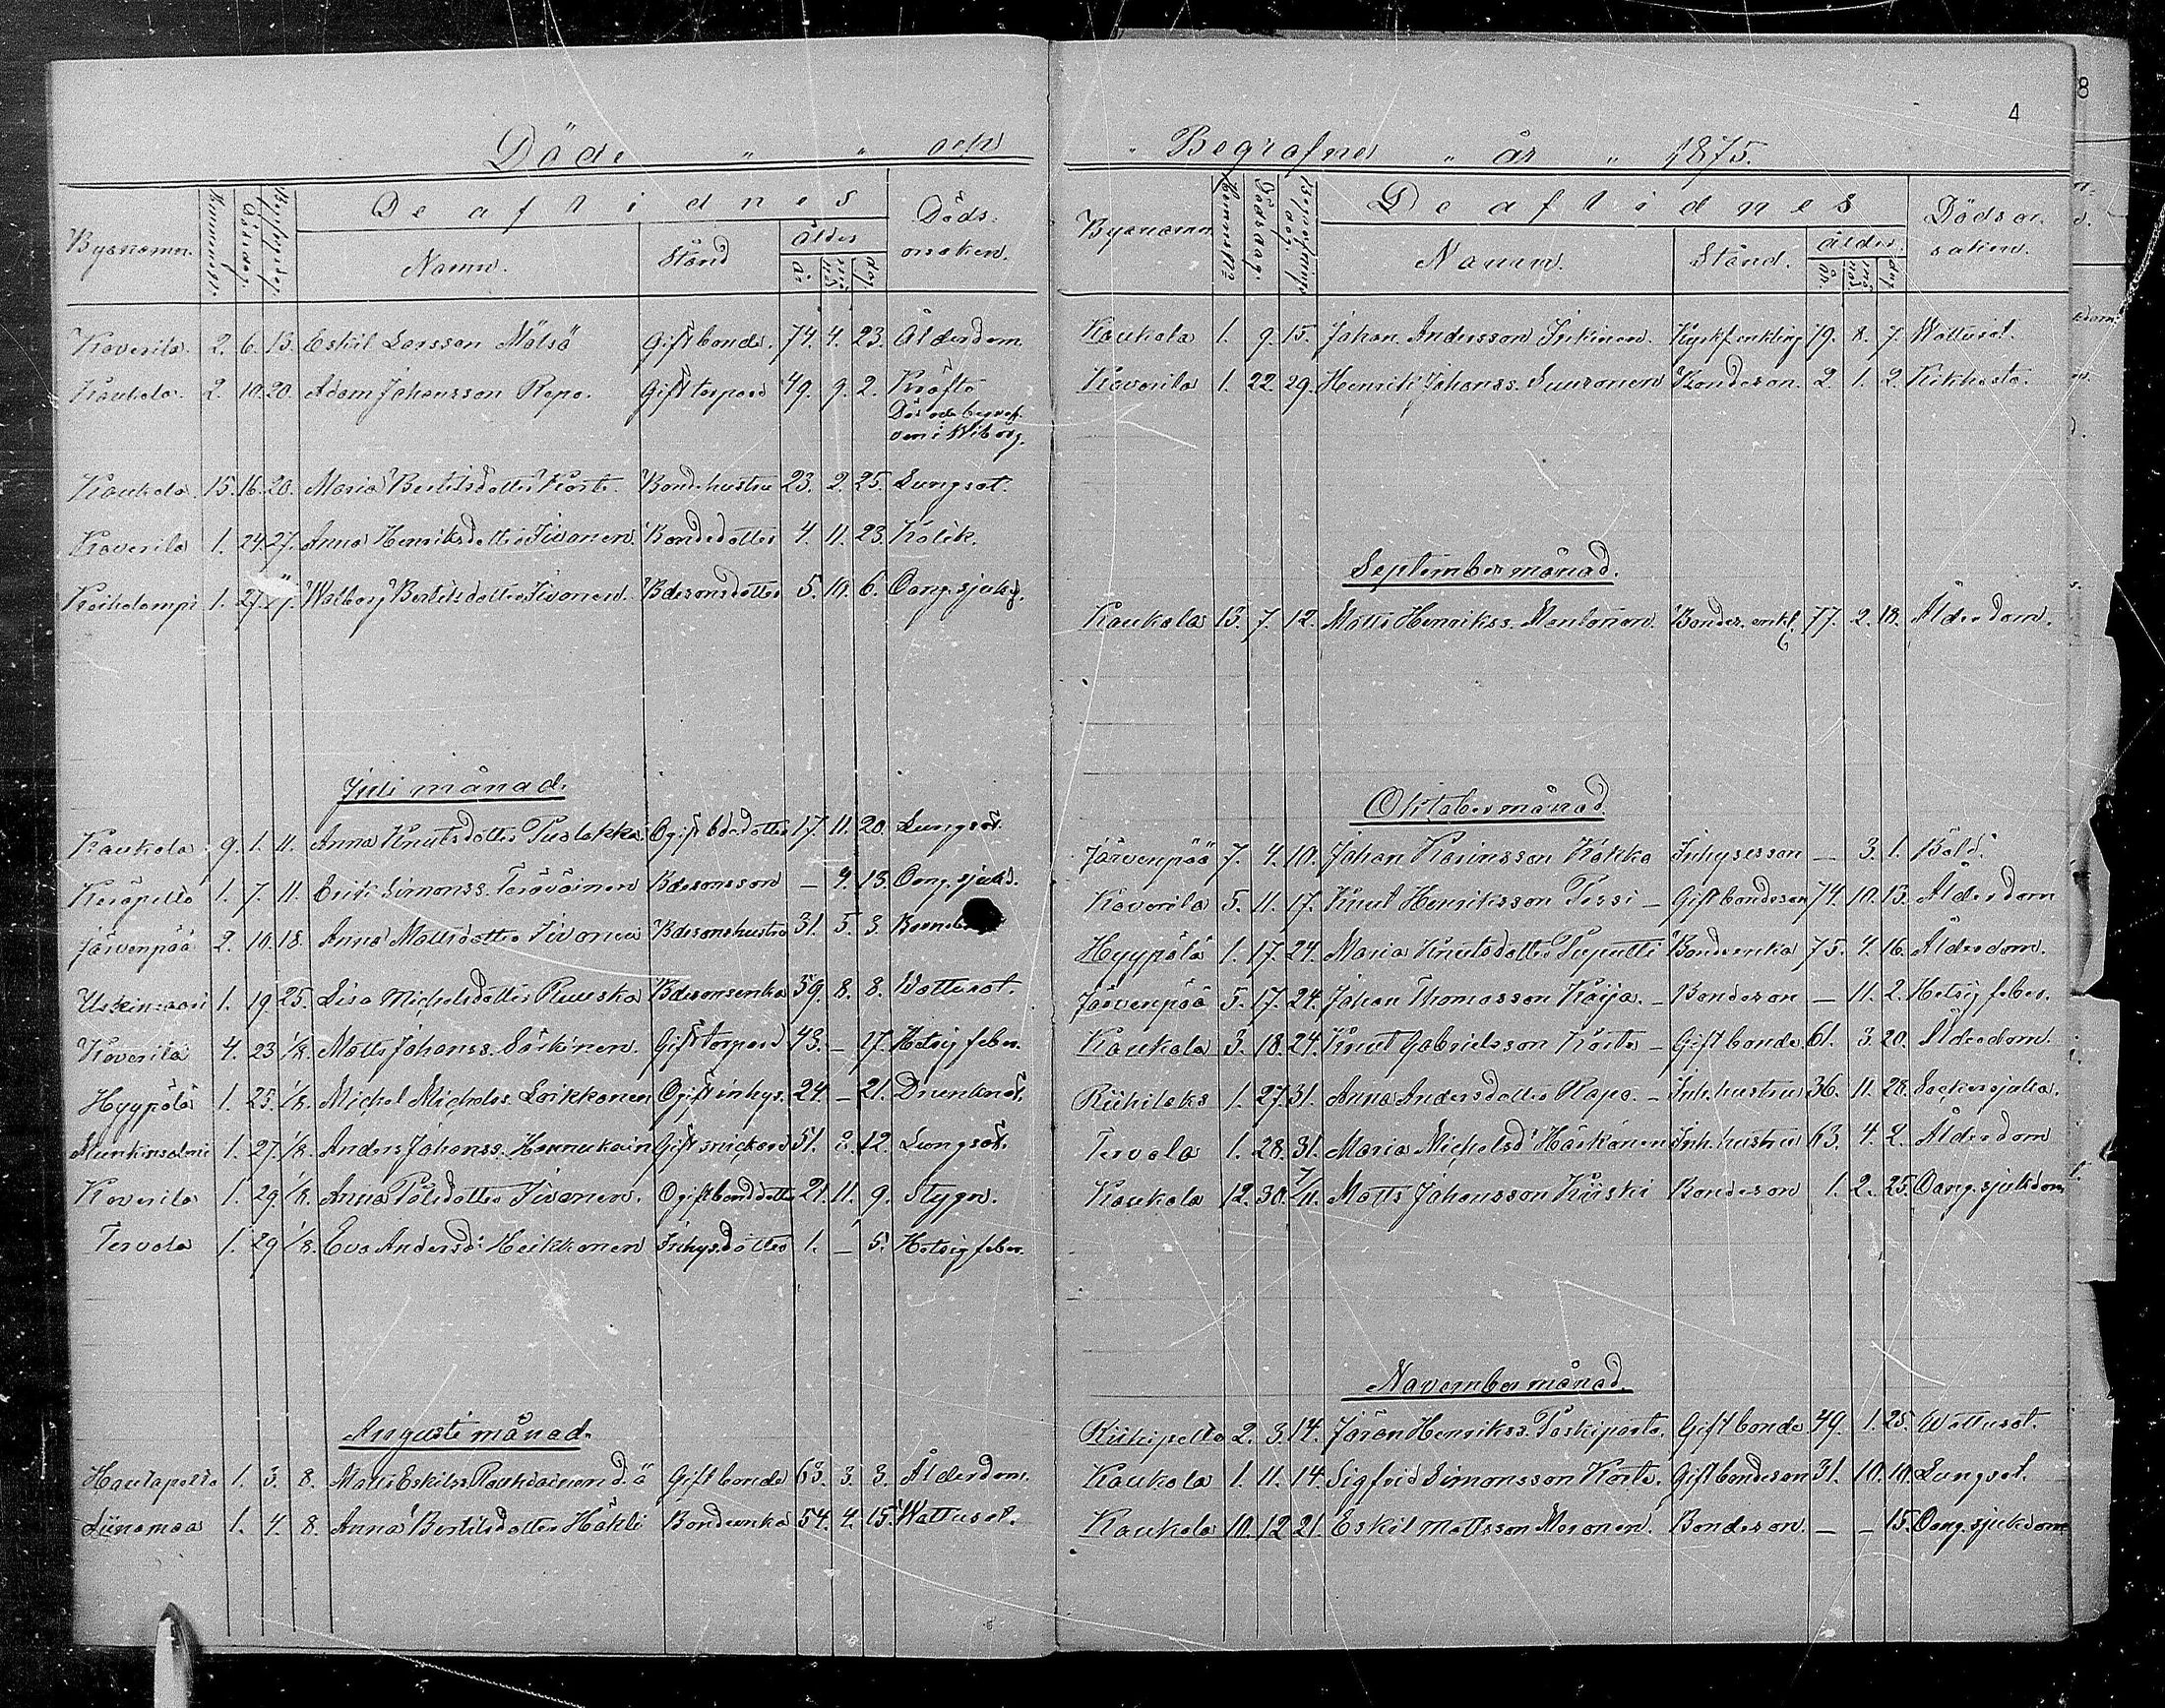 Döde " " och
Byanamn. Hemmansn. Dödsdag. Begrafn.dag. De aflidnes Namn. Stånd Ålder år mån dag Döds- orsaken.
Kaverila. 2. 6. 13. Eskil Larsson Mälsä Gift bonde. 74. 4. 23. Ålderdom.
Kaukola. 2. 10. 20. Adam Johansson Repo. Gift torpare 49. 9. 2. Kräfta
Död och begraf-
ven i Wiborg.
Kaukola 15. 16. 20. Maria Bertilsdotter Korte. Bondehustru 23. 2. 25. Lungsot.
Kaverila 1. 24. 27. Anna Henriksdotter Iivonen. Bondedotter 4. 11. 23. Kolik.
Koikolampi 1. 27. Walborg Bertilsdotter Iivonen. Bdesonsdotter 5. 10. 6. Oang. sjukd.
Juli månad.
Kaukola 9. 1. 11. Anna Knutsdotter Puolakka Ogift bdedotter 17. 11. 20. Lungsot.
Koröpelto 1. 7. 11. Erik Simonss. Teräväinen Bdesonsson — 9. 13. Oang. sjukd.
Järvenpää 2. 10. 18. Anna Mattsdotter Iivonen Bdesonshustru 31. 5. 3.
1. 19. 25. Lisa Michelsdotter Ruuska Bdesonsenka 59. 8. 8. Wattusot.
Kaverila 4. 23. 1/8. Matts Johanss. Särkinen. Gift torpare 43. — 17. Hetsig feber.
Hyypölä 1. 25. 1/8. Michel Michelss. Loikkanen Ogift inhys. 24. — 21. Drunknat.
Munkinsalmi 1. 27. 1/8. Anders Johanss. Hannukain Gift snickare 51. 2. 12. Lungsot.
Kaverila 1. 29. 1/8. Anna Pålsdotter Iivonen. Ogift bonddotter 21. 11. 9. Stygn.
Tervola 1. 29 1/8. Eva Andersd: Heikkonen Inhys.dotter 1. — 5. Hetsig feber.
Augusti månad.
Hautapelto 1. 3. 8. Matts Eskilss. Raukiainen d.ä Gift bonde 63. 3. 3. Ålderdom.
Liinamaa 1. 4. 8. Anna Bertilsdotter Häkli Bondeenka 54. 4. 15. Wattusot.
4
" Begrafne " år " 1875.
Byanamn Hemmans № Dödsdag. Begrafnings dag De aflidnes Namn. Stånd. Ålder. år. månad. dag Dödsor- saken.
Kaukola 1. 9. 15. Johan Andersson Inkinen. Kyrkf. enkling 79. 8. 7. Wattusot.
Kaverila 1. 22. 29. Henrik Johanss. Suuronen Bondeson. 2. 1. 2. Kikhosta.
September månad.
Kaukola 13. 7. 12. Matts Henrikss. Montonen. Bondes. enkl. 77. 2. 18. Ålderdom.
Oktober månad.
Järvenpää 7. 4. 10. Johan Karinsson Kokko Inhysesson — 3. 1. Böld.
Kaverila 5. 11. 17. Knut Henriksson Torsi — Gift bondeson 74. 10. 13. Ålderdom
Hyypölä 1. 17. 24. Maria Knutsdotter Puputti Bondeenka 75. 4. 16. Ålderdom.
Järvenpää 5. 17. 24. Johan Thomasson Kaija. — Bondeson — 11. 2. Hetsig feber.
Kaukola 3. 18. 24. Knut Gabrielsson Korte — Gift bonde 61. 3. 20. Ålderdom.
Riihilaks 1. 27. 31. Anna Andersdotter Rapo. — Inh. hustru 36. 11. 28. Sockersjuka.
Tervola 1. 28. 31. Maria Michelsd: Häskänen Inh. hustru 63. 4. 2. Ålderdom
Kaukola 12. 30. 7/11. Matts Johansson Kiiski Bondeson 1. 2. 25. Oang. sjukdom
November månad.
Riihipelto 2. 3. 14. Jöran Henrikss. Paskiparta. Gift bonde 49. 1. 25. Wattusot.
Kaukola 1. 11. 14. Sigfrid Simonsson Korte. Gift bondeson 31. 10. 10. Lungsot.
Kaukola 10. 12 21. Eskil Mattsson Meronen. Bondeson. — — 15. Oang. sjukdom
8